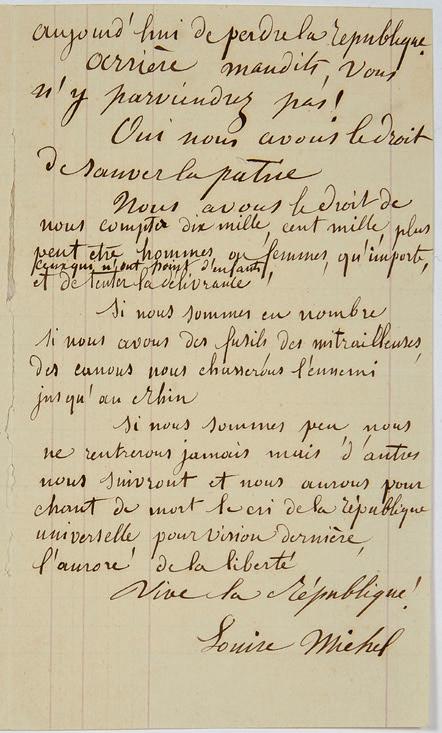 aujourd'hui de perdre la République
arrière maudits, vous
n'y parviendrez pas!
Oui nous avons le droit
de sauver la patrie
Nous avons le droit de
nous compter dix mille, cent mille, plus
peut être, hommes ou femmes, qu'importe,
ceux qui n'ont point d'enfants
et de tenter la délivrance !
Si nous sommes en nombre
si nous avons des fusils des mitrailleuses
des canons nous chasserons l'ennemi
jusqu'au Rhin
Si nous sommes peu nous
ne rentrerons jamais mais d'autres
nous suivront et nous aurons pour
chant de mort le cri de la république
universelle pour vision dernière
l'aurore de la liberté
Vive la République!
Louise Michel